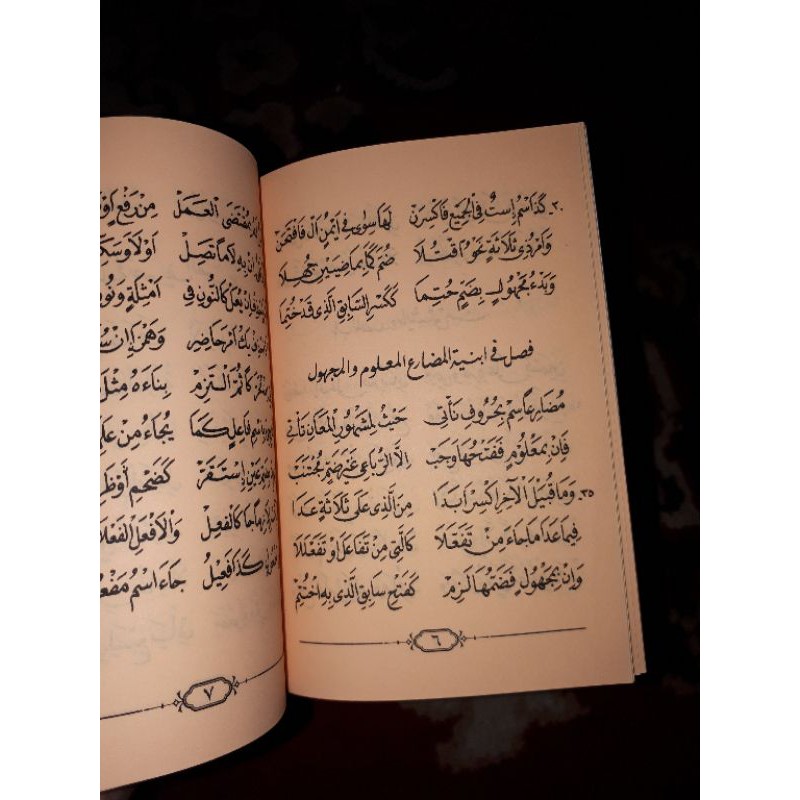 ٣٠. كَذَا اسْمٌ اِسْتٌ فِى الْجَمِيْعِ فَاكْسِرَنْ لَهَا سِوٰى فِى اَيْمُنٍ اَلْ فَافْتَحَنْ
وَاَمْرُ ذِى ثَلَاثَةٍ نَحْوُ اقْتُلَا ضُمَّ كَمَا بِمَاضِيَيْنِ جُهِلَا
وَبَدْءُ مَجْهُوْلٍ بِضَمٍّ حُتِمَا كَكَسْرِ السَّابِقِ الَّذِى قَدْ خُتِمَا
فصل فى ابنية المضارع المعلوم والمجهول
مُضَارِعًا سِمْ بِحُرُوْفِ نَأْتِى حَيْثُ لِمَشْهُوْرِ الْمَعَانِى تَأْتِى
فَاِنْ بِمَعْلُوْمٍ فَفَتْحُهَا وَجَبْ اِلَّا الرُّبَاعِىْ غَيْرُ ضَمٍّ مُجْتَنَبْ
٣٥. وَمَا قُبَيْلَ الْآخِرِ اكْسِرْ اَبَدَا مِنَ الَّذِى عَلَى ثَلَاثَةٍ عَدَا
فِيْمَا عَدَا مَا جَاءَ مِنْ تَفَعَّلَا كَالْآتِى مِنْ تَفَاعَلَ اَوْ تَفَعْلَلَا
وَاِنْ بِمَجْهُوْلٍ فَضَمُّهَا لَزِمْ كَفَتْحِ سَابِقِ الَّذِى بِهِ اخْتُتِمْ
٦
مُقْتَضَى الْعَمَلْ مِنْ رَفْعٍ
بِهِ لَامًا تَصِلْ اَوْلَا
فَاِنْ بِفِعْلٍ كَالنُّوْنِ فِى اَمْثِلَةٍ
اَمْرَ حَاضِرٍ وَهَمْزًا اِنْ
كَمَا ثُمَّ الْتُزِمْ بِنَاءَهُ مِثْلَ
اسْمِ فَاعِلٍ كَمَا يُجَاءُ مِنْ
عَيْنٍ اِسْتَقَرّْ كَضَخْمٍ اَوْ
مَا جَا كَالْفَعِلْ وَالْاَفْعَلِ الْفَعْلَانِ
كَذَا فَعِيْلُ جَاءَ اسْمُ
٧